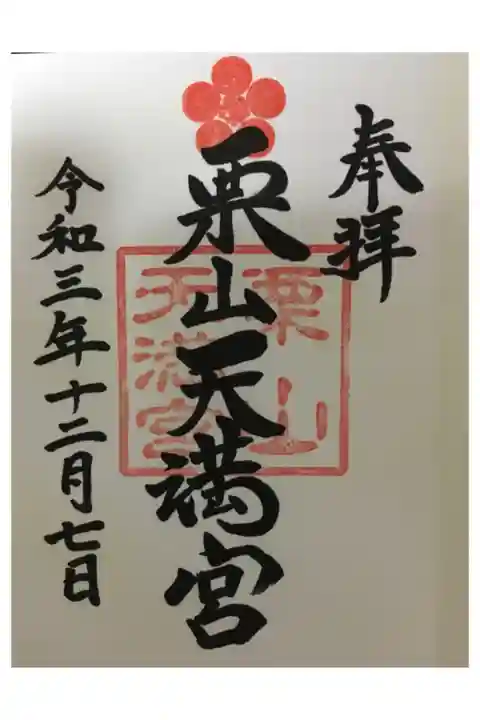 奉拝
栗山天満宮
栗山
天満宮
令和三年十二月七日